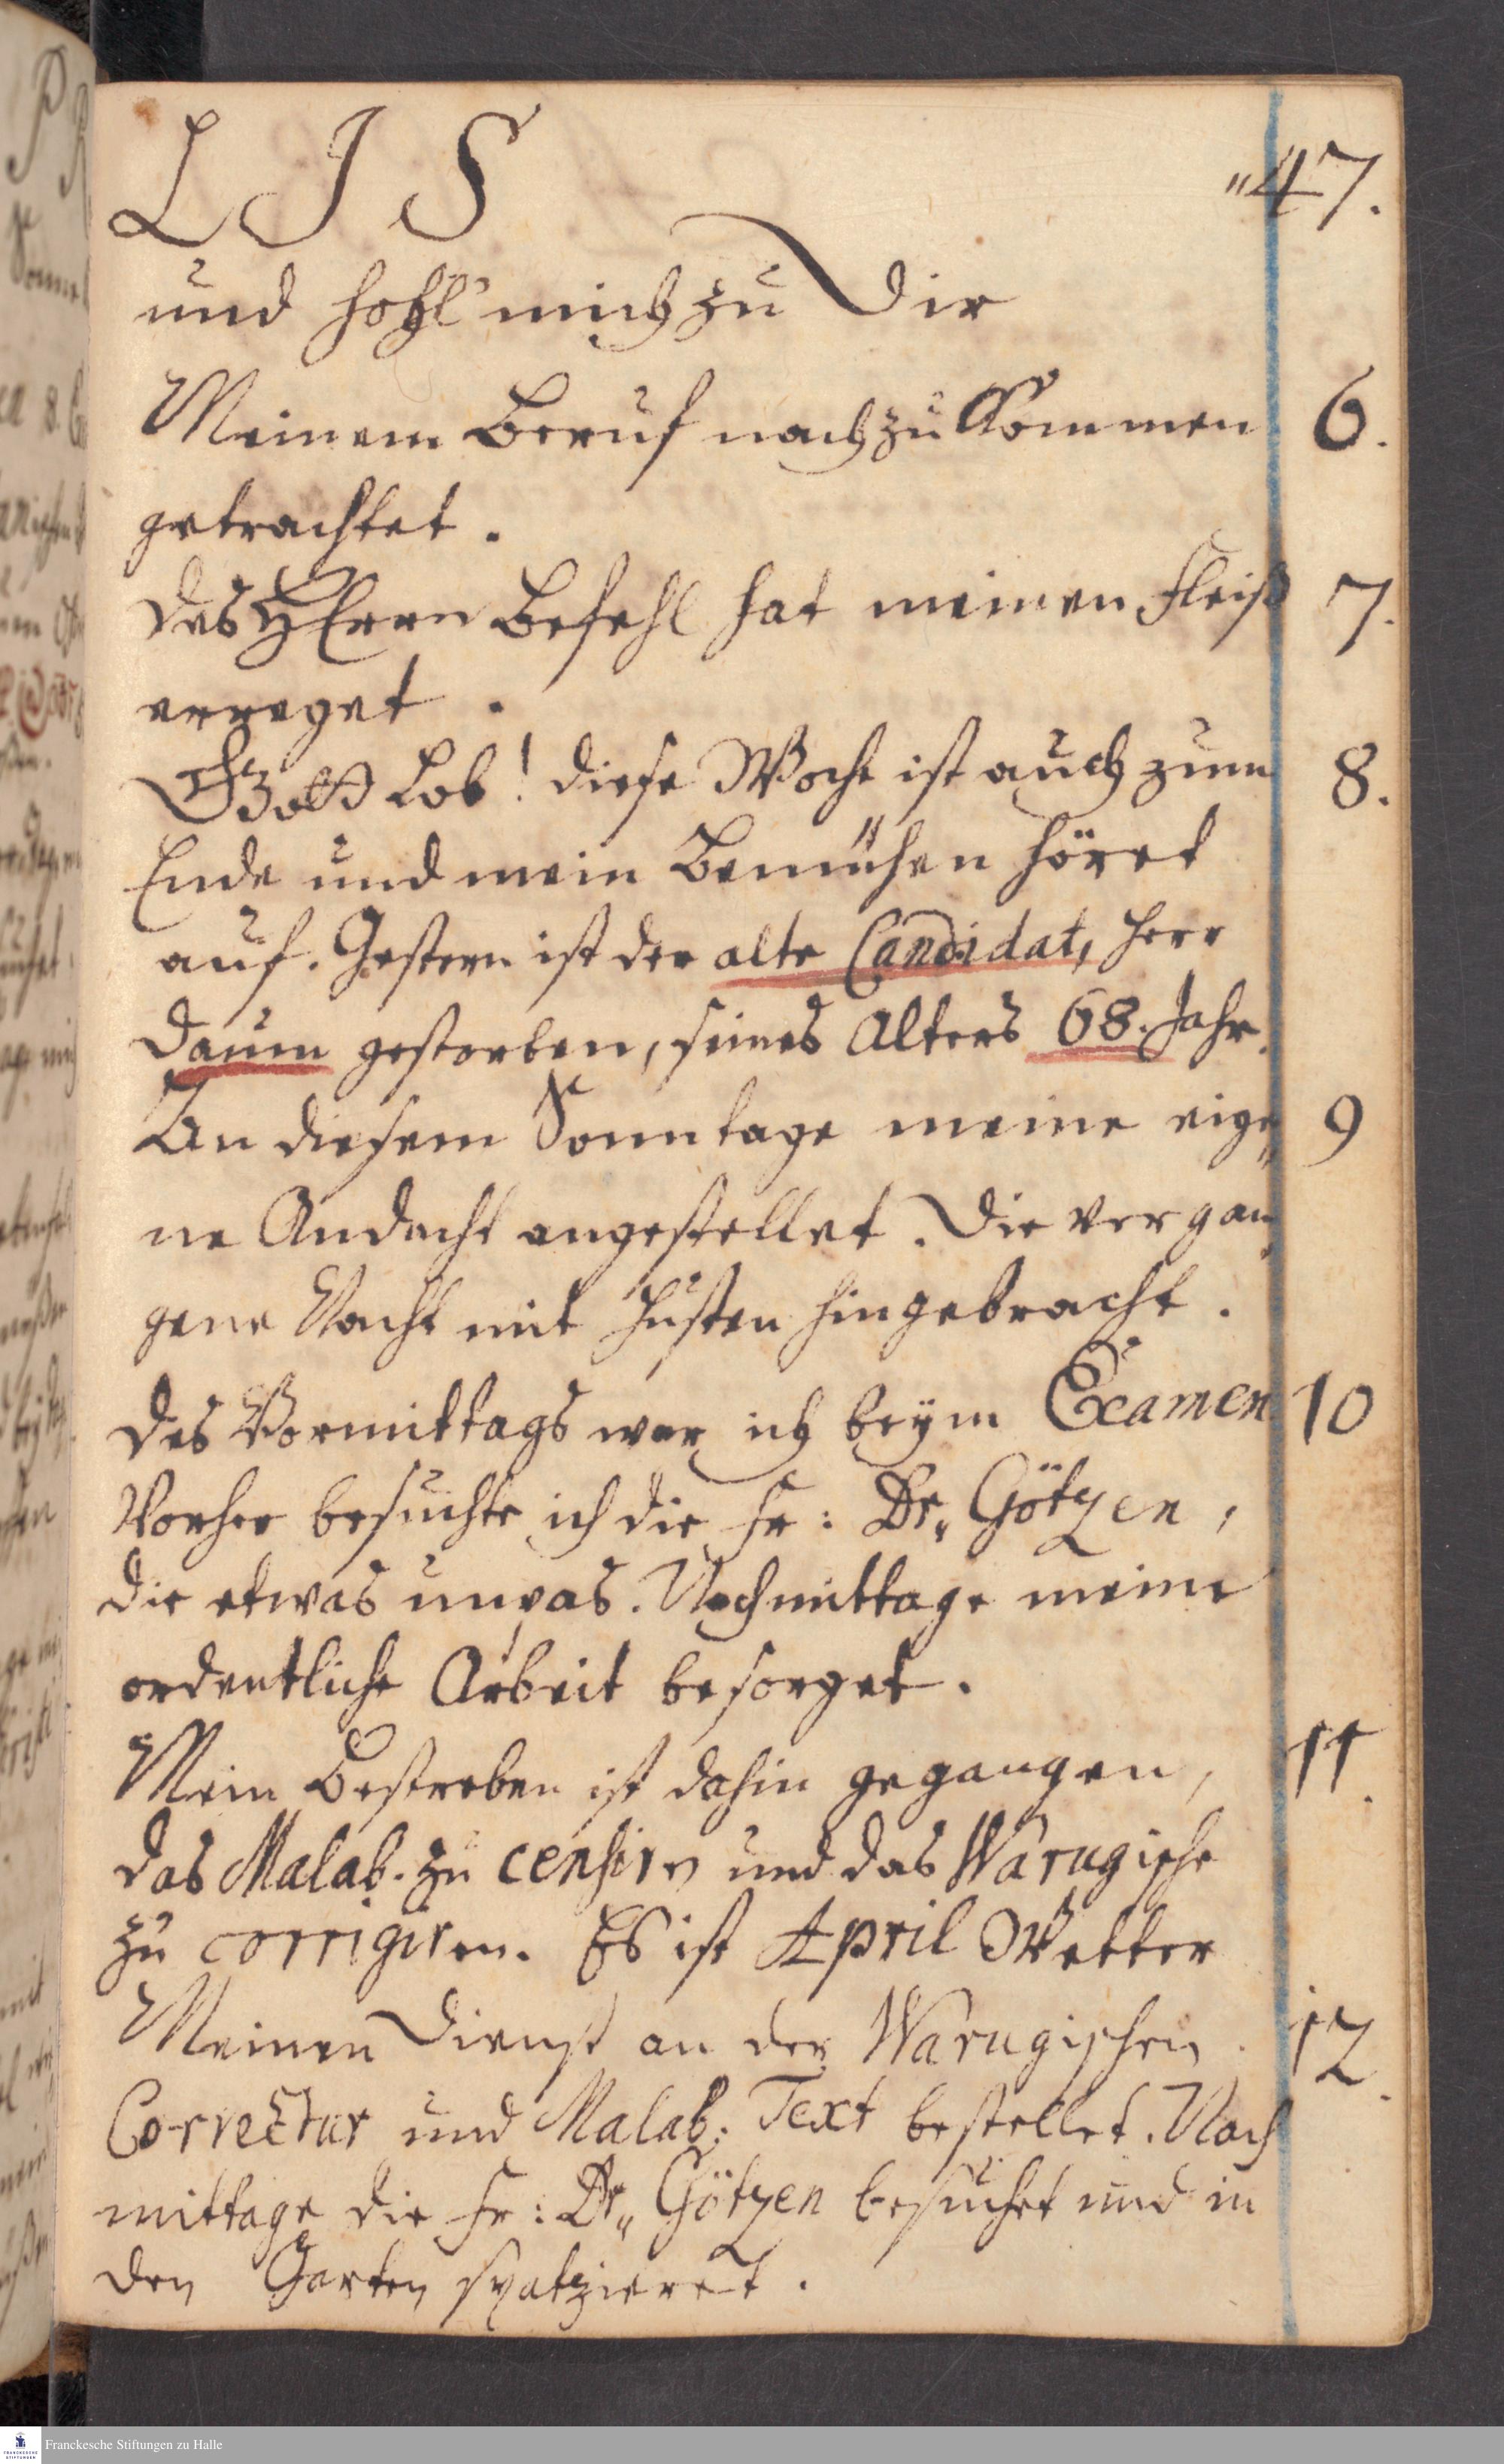 LIS
„47.
und hohl' mich zu Dir
Meinem Beruf nachzukommen 6.
getrachtet.
Des HErrn Befehl hat meinen Fleiß 7.
erreget.
Gott Lob! diese Woche ist auch zum 8.
Ende und mein Bemühen höret
auf. Gestern ist der alte Candidat, Herr
Daum gestorben, seines Alters 68. Jahr.
An diesem Sonntage meine eige„ 9
ne Andacht angestellet. Die vergan„
gene Nacht mit Husten hingebracht.
Des Vormittags war ich beym Examen 10
Vorher besuchte ich die Fr: Dr„ Götzen,
die etwas unpas. Nachmittage meine
ordentliche Arbeit besorget.
Mein Bestreben ist dahin gegangen, 11.
das Malab. zu censirn und das Warugische
zu corrigiren. Es ist April Wetter
Meinen Dienst an der Warugischen 12.
Correctur und Malab: Text bestellet. Nach
mittage die Fr: Dr„ Götzen besuchet und in
den Garten spatzieret.
Franckesche Stiftungen zu Halle